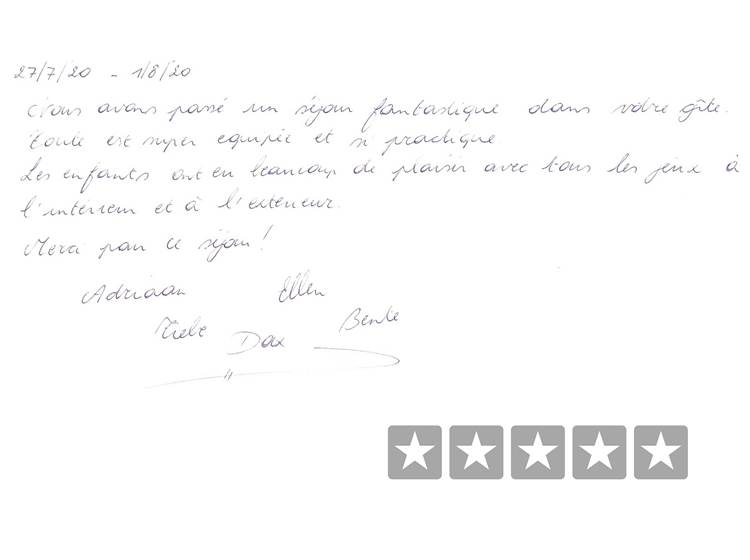 27/7/20 - 1/8/20
Nous avons passé un séjour fantastique dans votre gîte.
Toute est super equipée et si practique
Les enfants ont eu beaucoup de plaisir avec tous les jeux à
l'intérieur et à l'exterieur.
Merci pour ce séjour!
Adriaan Ellen
Tiebe Dax Bente